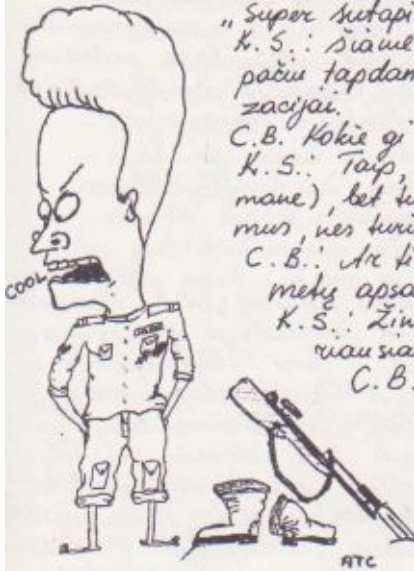 „Super sutapi
K. S.: šiame
pačiu tapdam
zacijai.
C.B. Kokie gi
K. S.: Taip,
mane), bet tu
mus, nes turi
C. B.: Ar ti
metų apsa
K. Š.: Žin
riausia
C. B.
COOL
ATC